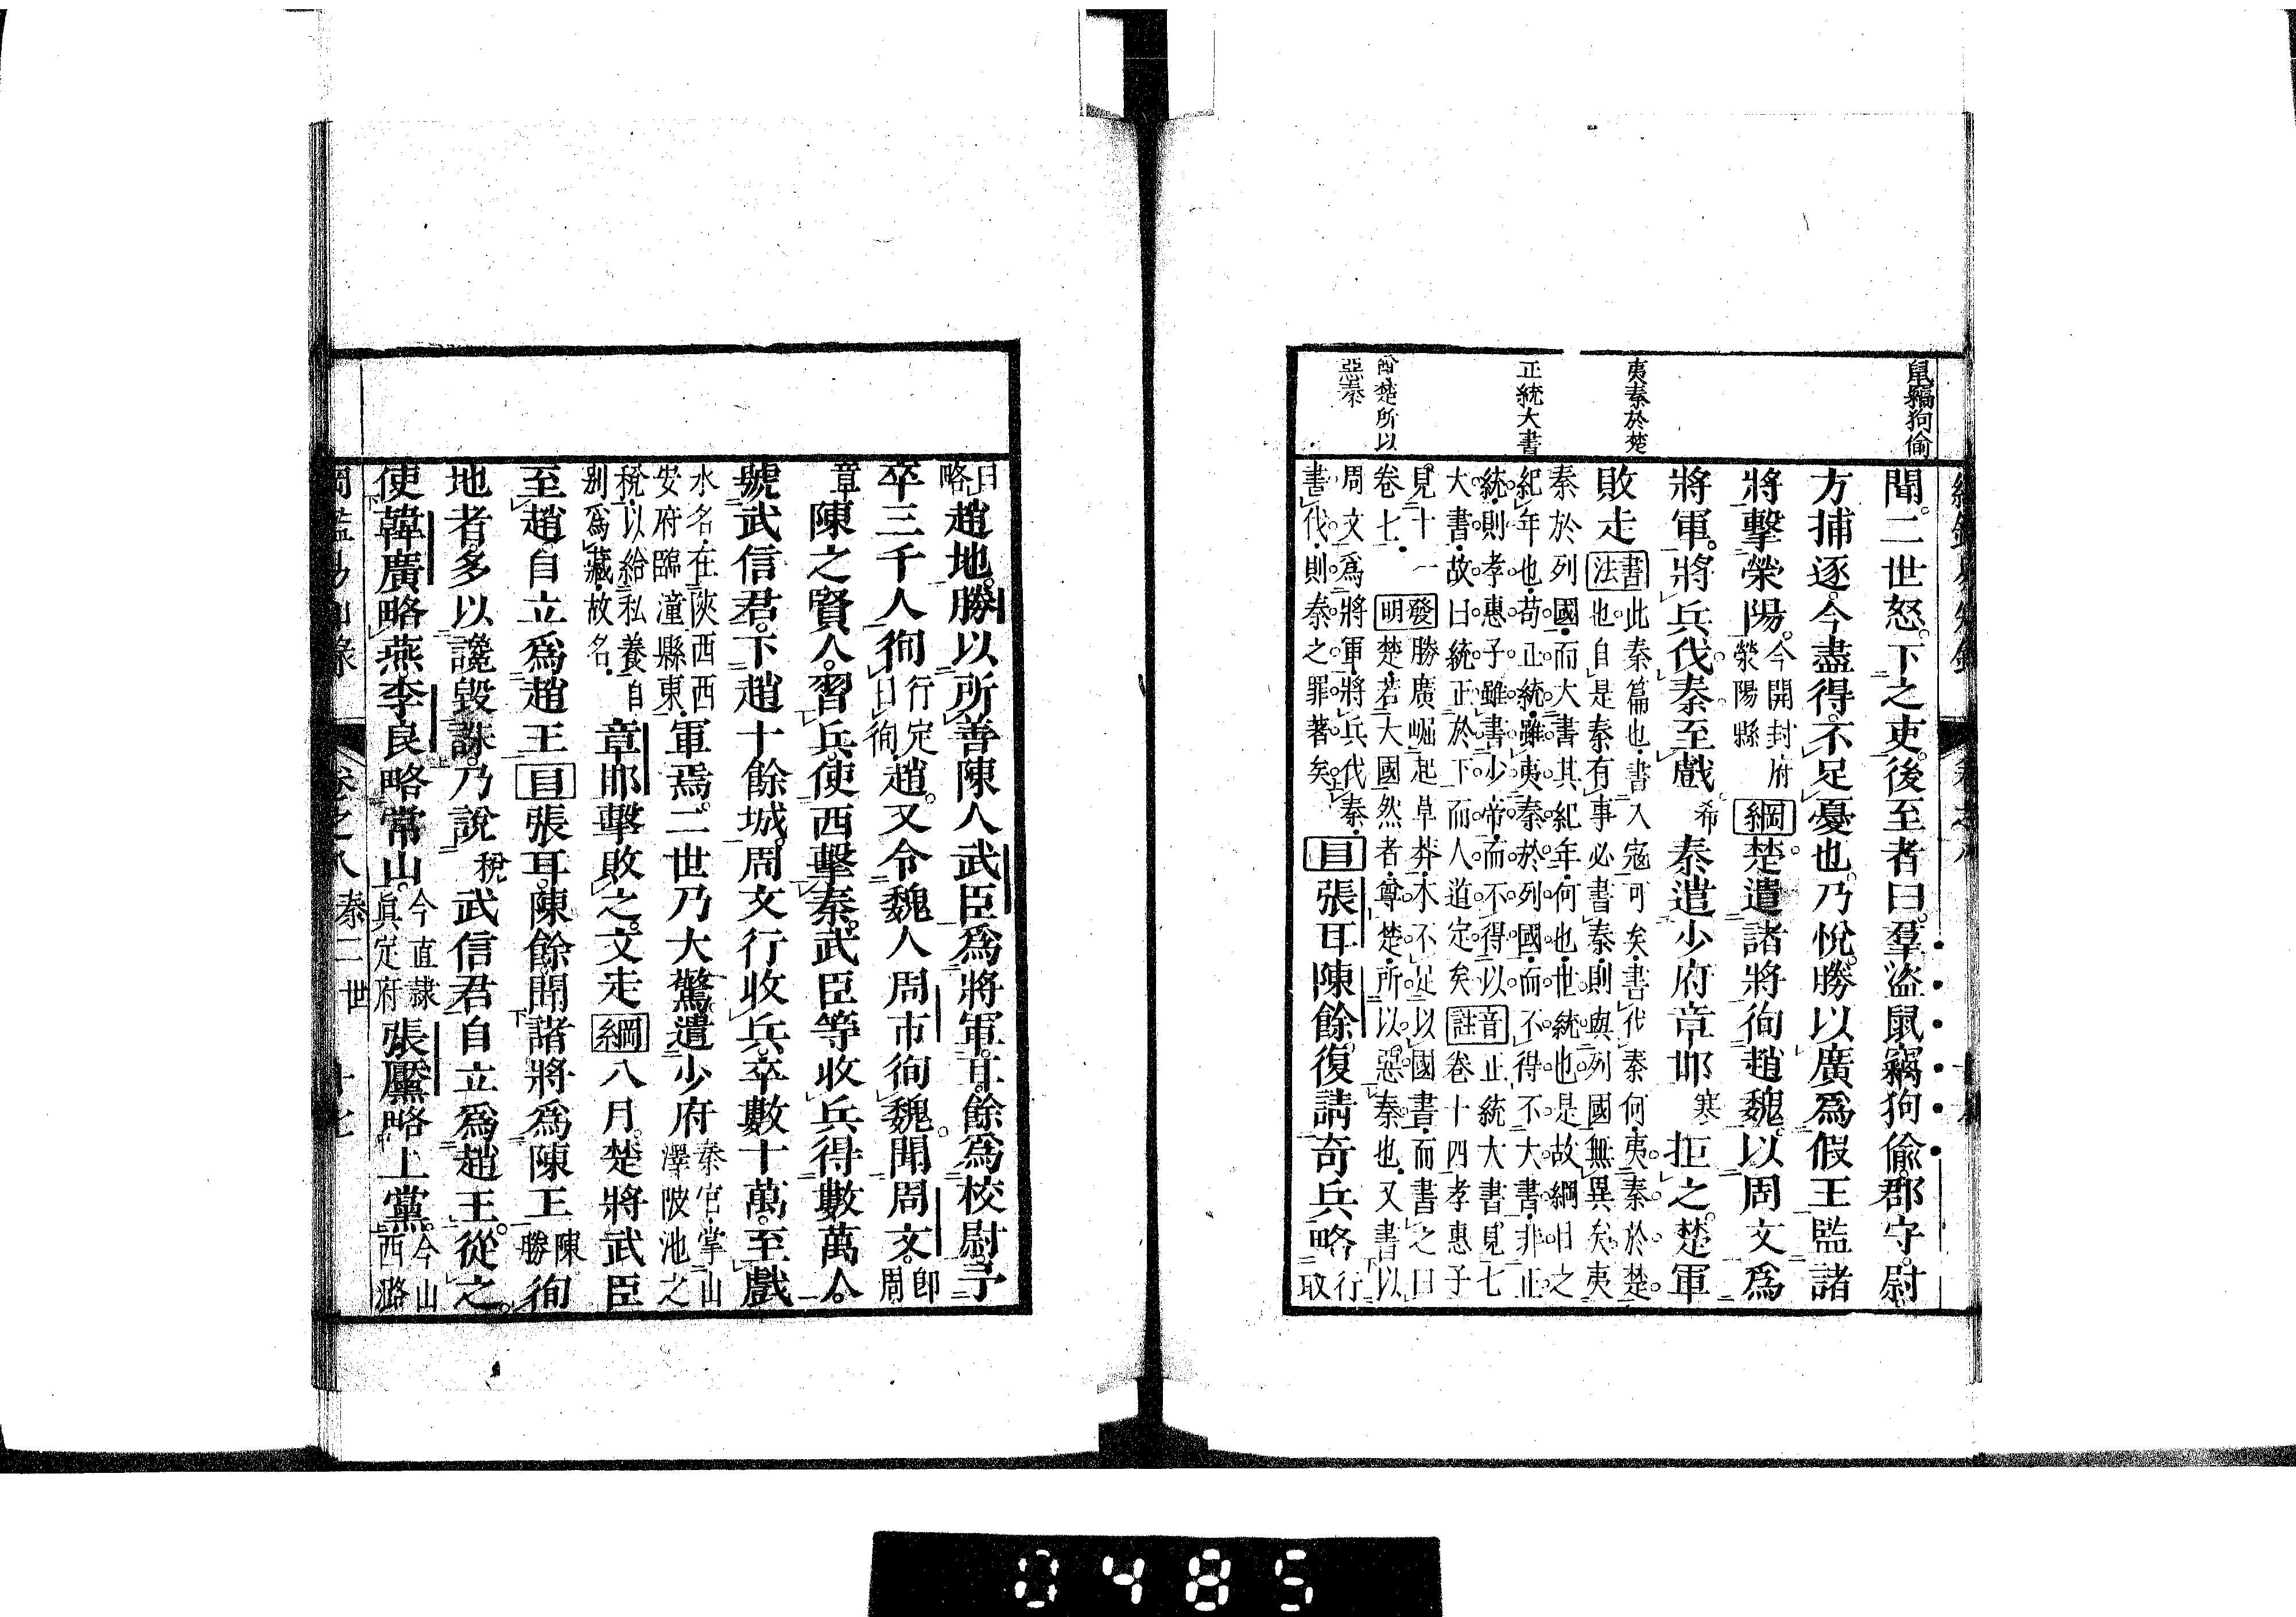 鼠竊狗偷
夷秦於楚
正統大書
楚所以
惡秦
聞。二世怒。下之吏。後至者曰。羣盜鼠竊狗偷。郡守。尉。
方捕逐。今盡得。不足憂也。乃悅。勝以廣爲假王監諸
將擊滎陽。今開封府滎陽縣 綱楚。遣諸將徇趙魏。以周文爲
將軍。將兵伐秦。至戲希秦遣少府章邯寒拒之。楚軍
敗走 書法此秦篇也書入寇可矣書伐秦何夷秦於楚
也自是秦有事必書秦則與列國無異矣夷
秦於列國而大書其紀年何也世統也是故綱目之
紀年也苟正統雖夷秦於列國而不得不大書非正
統則孝惠子雖書少帝而不得以正統大書見七
大書故曰統正於下而人道定矣 音註卷十四孝惠子
見十一
卷七 發明勝廣崛起草莽不足以國書而書之曰
楚若大國然者尊楚所以惡秦也又書以
周文爲將軍將兵伐秦
書伐則秦之罪著矣 目張耳陳餘。復請奇兵略行取
曰略趙地。勝以所善陳人武臣爲將軍。耳。餘爲校尉。予
卒三千人徇行定曰徇趙。又令魏人周市徇魏。聞周文。卽周
章陳之賢人。習兵。使西擊秦。武臣等收兵得數萬人。
號武信君。下趙十餘城。周文行收兵。卒數十萬。至戲
水名在陝西西安府臨潼縣東軍焉。二世乃大驚遣少府秦官掌山澤陂池之
稅以給私養自別爲藏故名章邯擊敗之。文走 綱八月。楚將武臣
至趙自立爲趙王 目張耳。陳餘。聞諸將爲陳王陳勝徇
地者。多以讒毀誅。乃說稅武信君自立爲趙王。從之。
使韓廣略燕。李良略常山。今直隸眞定府張黶略上黨。今山西潞
卷之八 秦二世